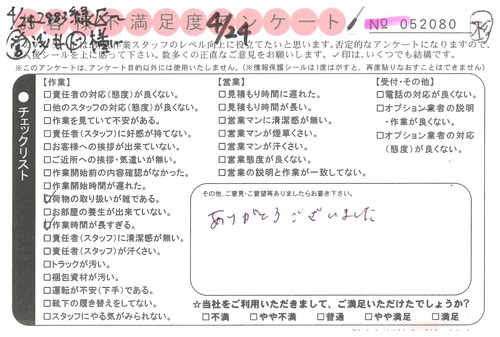 お客様満足度アンケート
4/24
№ 052080
作業スタッフのレベル向上に役立てたいと思います。否定的なアンケートになりますので、
後シールを上に貼って下さい。数多くの正直なご意見をお願いします。✓印は、いくつでも結構です。
※このアンケートは、アンケート目的以外には使用いたしません。(※情報保護シールは1度はがすと、再度貼りなおすことはできません)
●チェックリスト
【作業】
□責任者の対応(態度)が良くない。
□他のスタッフの対応(態度)が良くない。
□作業を見ていて不安がある。
□責任者(スタッフ)に好感が持てない。
□お客様への挨拶が出来ていない。
□ご近所への挨拶・気遣いが無い。
□作業開始前の内容確認がなかった。
□作業開始時間が遅れた。
☑荷物の取り扱いが雑である。
□お部屋の養生が出来ていない。
☑作業時間が長すぎる。
□責任者(スタッフ)に清潔感が無い。
□責任者(スタッフ)が汗くさい。
□トラックが汚い。
□梱包資材が汚い。
□運転が不安(下手)である。
□靴下の履き替えをしてない。
□スタッフにやる気がみられない。
【営業】
□見積もり時間に遅れた。
□見積もり時間が長い。
□営業マンに清潔感が無い。
□営業マンが煙草くさい。
□営業マンが汗くさい。
□営業態度が良くない。
□営業の説明と作業が一致してない。
【受付・その他】
□電話の対応が良くない。
□オプション業者の説明
・作業が良くない。
□オプション業者の対応
(態度)が良くない。
その他、ご意見・ご要望等ありましたらお書き下さい。
ありがとうございました
☆当社をご利用いただきまして、ご満足いただけたでしょうか?
□不満 □やや不満 □普通 □やや満足 □満足